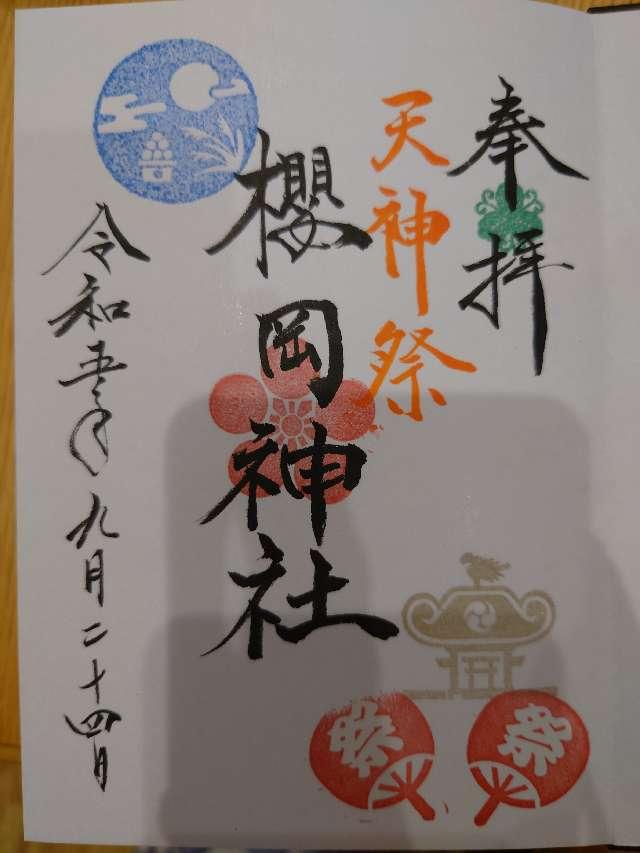 奉拝
天神祭
櫻岡神社
令和五年九月二十四日
祭
祭